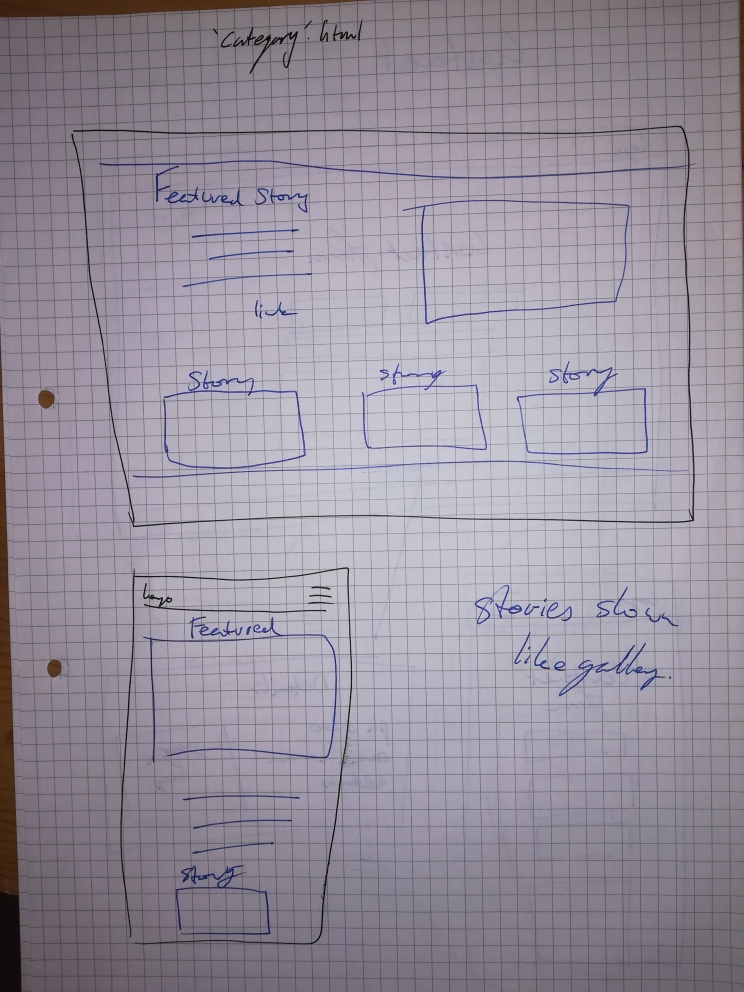 'Category'.html
Featured Story
link
Story
story
story
Logo
Featured
story
stories show
like gallery.